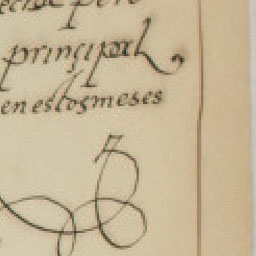 pero
principal,
en estos meses